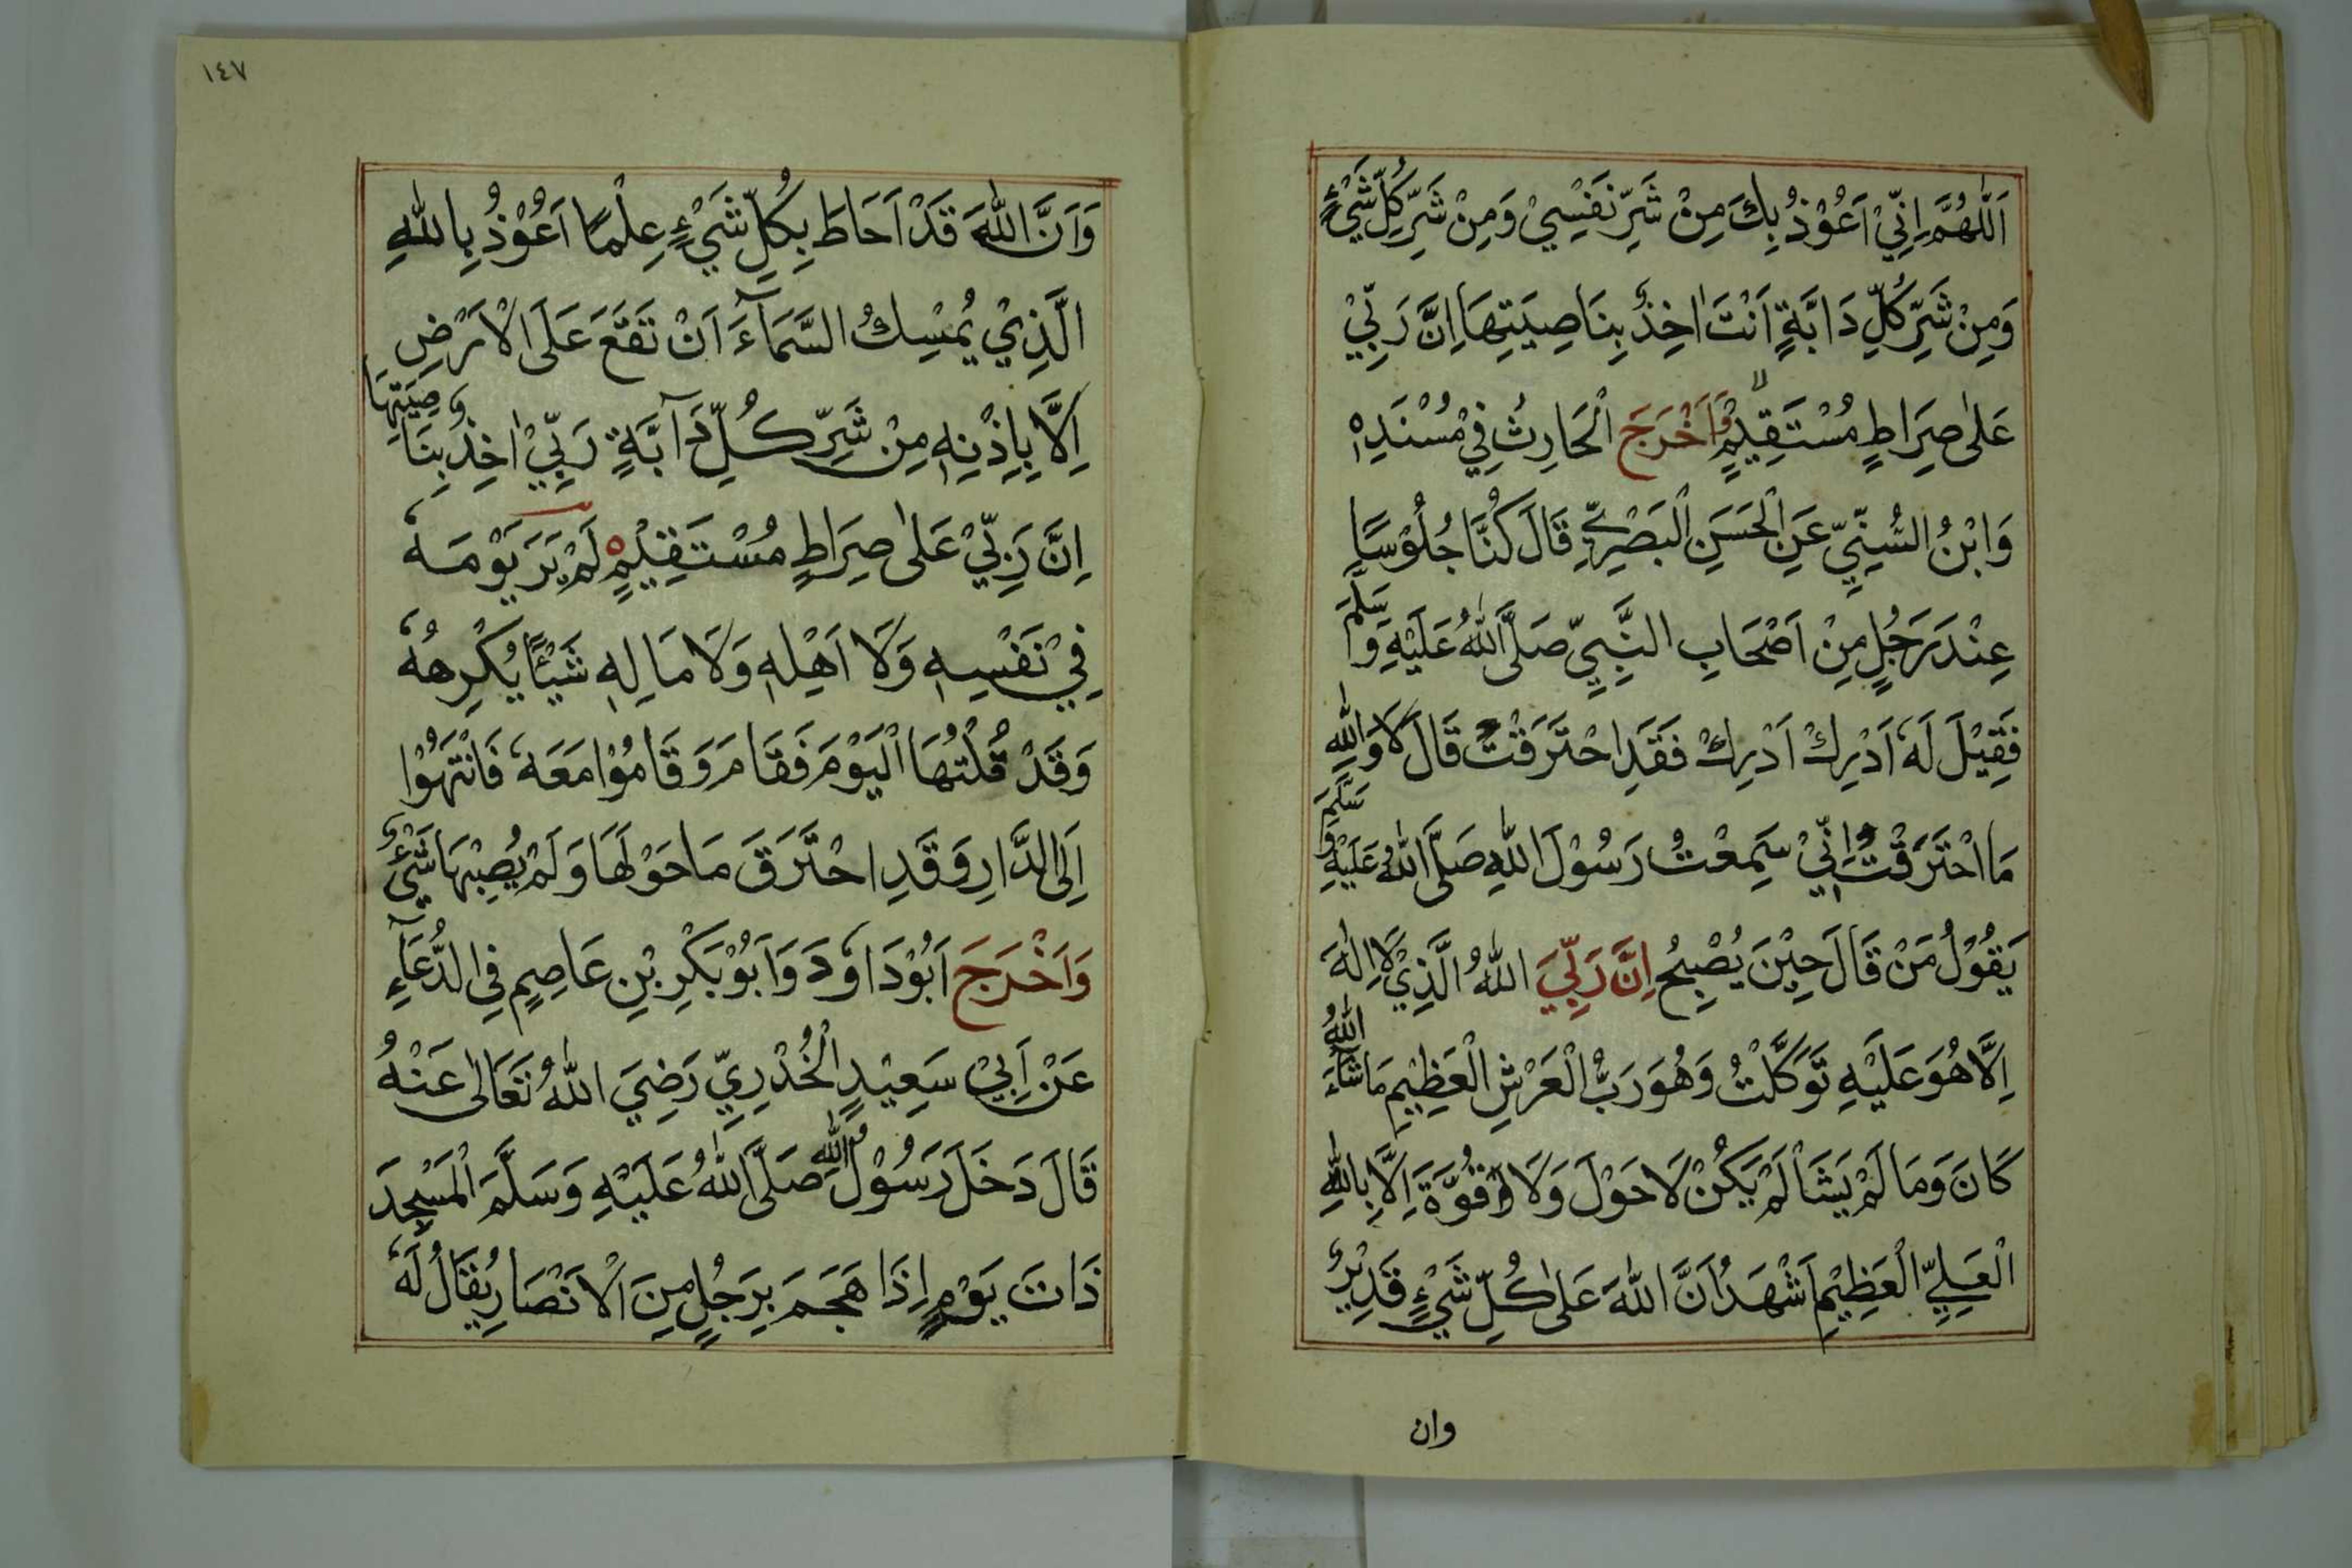 اَللّٰهُمَّ اِنِّيْ اَعُوْذُ بِكَ مِنْ شَرِّ نَفْسِيْ وَمِنْ شَرِّ كُلِّ شَيْءٍ
وَمِنْ شَرِّ كُلِّ دَابَّةٍ اَنْتَ اٰخِذٌ بِنَاصِيَتِهَا اِنَّ رَبِّيْ
عَلٰى صِرَاطٍ مُسْتَقِيْمٍ وَاَخْرَجَ الْحَارِثُ فِيْ مُسْنَدِهٖ
وَابْنُ السُّنِّيِّ عَنِ الْحَسَنِ الْبَصْرِيِّ قَالَ كُنَّا جُلُوْسًا
عِنْدَ رَجُلٍ مِنْ اَصْحَابِ النَّبِيِّ صَلَّى اللّٰهُ عَلَيْهِ وَسَلَّمَ
فَقِيْلَ لَهٗ اَدْرِكْ اَدْرِكْ فَقَدِ احْتَرَقْتَ قَالَ لَا وَاللّٰهِ
مَا احْتَرَقْتُ اِنِّيْ سَمِعْتُ رَسُوْلَ اللّٰهِ صَلَّى اللّٰهُ عَلَيْهِ وَسَلَّمَ
يَقُوْلُ مَنْ قَالَ حِيْنَ يُصْبِحُ اِنَّ رَبِّيَ اللّٰهُ الَّذِيْ لَا اِلٰهَ
اِلَّا هُوَ عَلَيْهِ تَوَكَّلْتُ وَهُوَ رَبُّ الْعَرْشِ الْعَظِيْمِ مَا شَآءَ اللّٰهُ
كَانَ وَمَا لَمْ يَشَاْ لَمْ يَكُنْ لَا حَوْلَ وَلَا قُوَّةَ اِلَّا بِاللّٰهِ
الْعَلِيِّ الْعَظِيْمِ اَشْهَدُ اَنَّ اللّٰهَ عَلٰى كُلِّ شَيْءٍ قَدِيْرٌ
وان
١٤٧
وَاَنَّ اللّٰهَ قَدْ اَحَاطَ بِكُلِّ شَيْءٍ عِلْمًا اَعُوْذُ بِاللّٰهِ
الَّذِيْ يُمْسِكُ السَّمَآءَ اَنْ تَقَعَ عَلَى الْاَرْضِ
اِلَّا بِاِذْنِهٖ مِنْ شَرِّ كُلِّ دَآبَّةٍ رَبِّيْ اٰخِذٌ بِنَاصِيَتِهَا
اِنَّ رَبِّيْ عَلٰى صِرَاطٍ مُسْتَقِيْمٍ لَمْ يَرَ يَوْمَهٗ
فِيْ نَفْسِهٖ وَلَا اَهْلِهٖ وَلَا مَالِهٖ شَيْئًا يُكْرِهُهٗ
وَقَدْ قُلْتُهَا الْيَوْمَ فَقَامَ وَقَامُوْا مَعَهٗ فَانْتَهَوْا
اِلَى الدَّارِ وَقَدِ احْتَرَقَ مَا حَوْلَهَا وَلَمْ يُصِبْهَا شَيْءٌ
وَاَخْرَجَ اَبُوْ دَاوٗدَ وَاَبُوْ بَكْرِ بْنِ عَاصِمٍ فِي الدُّعَآءِ
عَنْ اَبِيْ سَعِيْدٍ الْخُدْرِيِّ رَضِيَ اللّٰهُ تَعَالٰى عَنْهُ
قَالَ دَخَلَ رَسُوْلُ اللّٰهِ صَلَّى اللّٰهُ عَلَيْهِ وَسَلَّمَ الْمَسْجِدَ
ذَاتَ يَوْمٍ اِذَا هَجَمَ بِرَجُلٍ مِنَ الْاَنْصَارِ يُقَالُ لَهٗ